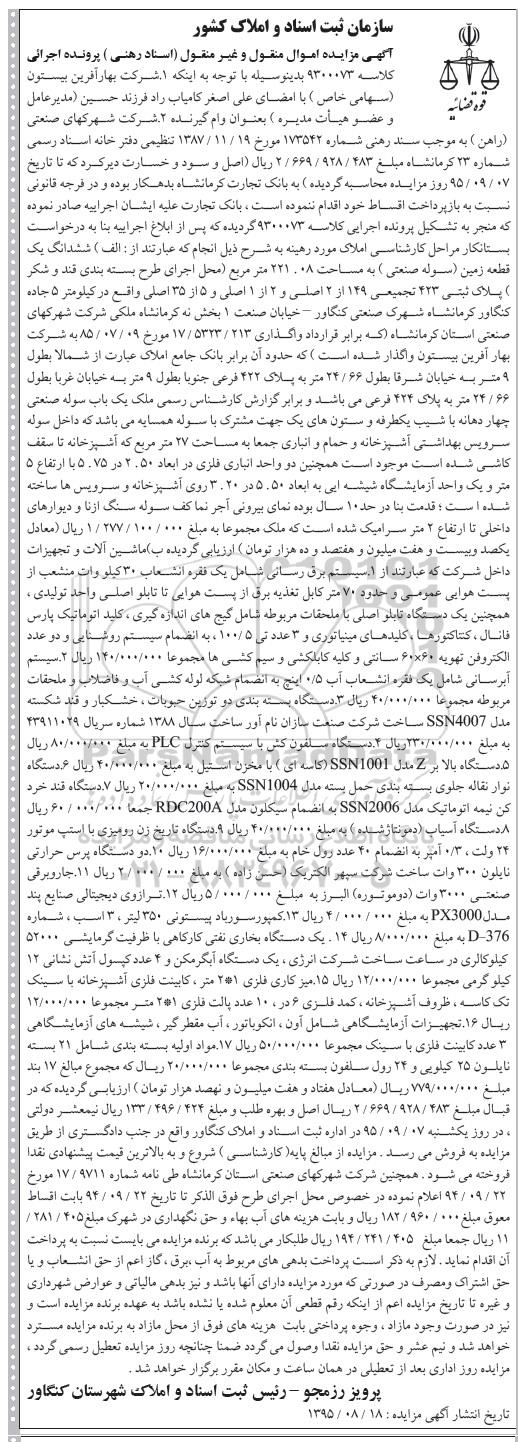 سازمان ثبت اسناد و املاک کشور
قوه قضائیه
آگهـی مزایـده امـوال منقـول و غیـر منقـول (اسـناد رهنـی ) پرونـده اجرائی
کلاسـه ۹۳۰۰۰۷۳ بدینوسـیله با توجـه به اینکه ۱.شـرکت بهارآفرین بیسـتون
(سـهامی خاص ) با امضـای علـی اصغر کامیـاب راد فرزند حسـین (مدیرعامل
و عضـو هیـأت مدیـره ) بعنـوان وام گیرنـده ۲.شـرکت شـهرکهای صنعتـی
(راهن ) به موجب سند رهنی شماره ۱۷۳۵۴۲ مورخ ۱۹ / ۱۱ / ۱۳۸۷ تنظیمی دفتر خانه اسناد رسمی
شماره ۲۳ کرمانشاه مبلـغ ۴۸۳ / ۹۲۸ / ۶۶۹ / ۲ ریال (اصل و سـود و خسـارت دیرکـرد که تا تاریخ
۰۷ / ۰۹ / ۹۵ روز مزایـده محاسـبه گردیده ) به بانک تجارت کرمانشـاه بدهـکار بوده و در فرجه قانونی
نسـبت به بازپرداخت اقساط خود اقدام ننموده است ، بانک تجارت علیه ایشـان اجراییه صادر نموده
که منجر به تشـکیل پرونده اجرایی کلاسـه ۹۳۰۰۰۷۳ گردیده که پس از ابلاغ اجراییه بنا به درخواست
بسـتانکار مراحل کارشناسـی املاک مورد رهینه به شـرح ذیل انجام که عبارتند از : الف ) ششدانگ یک
قطعه زمین (سـوله صنعتی ) به مسـاحت ۰۸ . ۲۲۱ متر مربع (محل اجرای طرح بسـته بندی قند و شکر
) پـلاک ثبتـی ۴۲۳ تجمیعـی ۱۴۹ از ۲ اصلـی و ۲ از ۱ اصلی و ۵ از ۳۵ اصلی واقـع در کیلومتر ۵ جاده
کنگاور کرمانشـاه شـهرک صنعتی کنگاور – خیابان صنعت ۱ بخش نه کرمانشـاه ملکی شـرکت شـهرکهای
صنعتی اسـتان کرمانشـاه (کـه برابر قرارداد واگـذاری ۲۱۳ / ۵۳۲۳ / ۱۷ مورخ ۰۹ / ۰۷ / ۸۵ به شـرکت
بهار آفرین بیسـتون واگذار شـده اسـت ) که حدود آن برابر بانک جامع املاک عبارت از شـمالا بطول
۹ متـر بـه خیابان شـرقا بطول ۶۶ / ۲۴ متر به پـلاک ۴۲۲ فرعی جنوبا بطول ۹ متر بـه خیابان غربا بطول
۶۶ / ۲۴ متر به پلاک ۴۲۴ فرعی می باشـد و برابر گزارش کارشـناس رسمی ملک یک باب سوله صنعتی
چهار دهانه با شـیب یکطرفه و سـتون های یک جهت مشـترک با سوله همسایه می باشد که داخل سوله
سـرویس بهداشـتی آشـپزخانه و حمام و انباری جمعا به مسـاحت ۲۷ متر مربع که آشـپزخانه تا سقف
کاشـی شـده اسـت موجود اسـت همچنین دو واحد انباری فلزی در ابعاد ۵۰ . ۲ در ۷۵ . ۵ با ارتفاع ۵
متر و یک واحد آزمایشـگاه شیشـه ایی به ابعاد ۵۰ . ۵ در ۲۰ . ۳ روی آشـپزخانه و سرویس ها ساخته
شـده ا سـت ؛ قدمت بنا در حد۱۰ سـال بوده نمای بیرونی آجر نما کف سـوله سـنگ ازنا و دیوارهای
داخلی تا ارتفاع ۲ متر سـرامیک شـده است که ملک مجموعا به مبلغ ۰۰۰ / ۱۰۰ / ۲۷۷ / ۱ ریال (معادل
یکصد وبیسـت و هفت میلیون و هفتصد و ده هزار تومان ) ارزیابی گردیده ب)ماشـین آلات و تجهیزات
داخل شـرکت که عبارتند از ۱.سیسـتم برق رسـانی شـامل یک فقره انشـعاب ۳۰کیلو وات منشعب از
پسـت هوایی عمومی و حدود ۷۰متر کابل تغذیه برق از پسـت هوایی تا تابلو اصلـی واحد تولیدی ،
همچنین یک دسـتگاه تابلو اصلی با ملحقات مربوطه شـامل گیج های اندازه گیری ، کلید اتوماتیک پارس
فانـال ، کنتاکتورهـا ، کلیدهـای مینیاتوری و ۳ عدد تی ۱۰۰/۵ ، به انضمام سیسـتم روشـنایی و دو عدد
الکتروفن تهویه ۶۰×۶۰ سـانتی و کلیه کابلکشی و سیم کشـی ها مجموعا ۱۴۰/۰۰۰/۰۰۰ ریال ۲.سیستم
آبرسـانی شامل یک فقره انشـعاب آب ۰/۵ اینچ به انضمام شـبکه لوله کشی آب و فاضلاب و ملحقات
مربوطه مجموعا ۴۰/۰۰۰/۰۰۰ ریال ۳.دسـتگاه بسـته بندی دو توزین حبوبات ، خشـکبار و قند شکسته
مدل SSN4007 سـاخت شـرکت صنعت سـازان نام آور ساخت سـال ۱۳۸۸ شماره سـریال ۴۳۹۱۱۰۲۹
به مبلغ ۲۳۰/۰۰۰/۰۰۰ریال ۴.دسـتگاه سـلفون کش با سیسـتم کنترل PLC به مبلغ ۸۰/۰۰۰/۰۰۰ ریال
۵.دسـتگاه بالا بر Z مدل SSN1001 (کاسـه ای ) با مخزن اسـتیل به مبلغ ۴۰/۰۰۰/۰۰۰ ریال ۶.دستگاه
نوار نقاله جلوی بسـته بندی حمل بسته مدل SSN1004 به مبلغ ۲۰/۰۰۰/۰۰۰ ریال ۷.دستگاه قند خرد
کن نیمه اتوماتیک مدل SSN2006 به انضمام سیکلون مدل RDC200A جمعا ۰۰۰/۰۰۰/ ۶۰ ریال
۸.دسـتگاه آسـیاب (دمونتاژشـده ) به مبلغ ۴۰/۰۰۰/۰۰۰ ریال ۹.دسـتگاه تاریخ زن رومیزی با استپ موتور
۲۴ ولت ، ۰/۳ آمپر به انضمام ۴۰ عدد رول خام به مبلغ ۱۶/۰۰۰/۰۰۰ ریال ۱۰.دو دسـتگاه پرس حرارتی
نایلون ۳۰۰ وات ساخت شرکت سپهر الکتریک (حسن زاده ) به مبلغ ۰۰۰ / ۰۰۰ / ۲ ریال ۱۱.جاروبرقی
صنعتـی ۳۰۰۰ وات (دوموتـوره) البـرز بـه مبلـغ ۰۰۰ / ۰۰۰ / ۵ ریال ۱۲.تـرازوی دیجیتالی صنایع پند
مـدلPX3000 به مبلغ ۰۰۰ / ۰۰۰ / ۴ ریال ۱۳.کمپورسـورباد پیسـتونی ۳۵۰ لیتر ، ۳ اسـب ، شـماره
D-376 به مبلغ ۸/۰۰۰/۰۰۰ ریال ۱۴ . یک دسـتگاه بخاری نفتی کارگاهی با ظرفیت گرمایشـی ۵۲۰۰۰
کیلوکالری در سـاعت سـاخت شـرکت انرژی ، یک دسـتگاه آبگرمکن و ۴ عدد کپسول آتش نشانی ۱۲
کیلو گرمی مجموعا ۱۲/۰۰۰/۰۰۰ ریال ۱۵.میز کاری فلزی ۱*۲ متر ، کابینت فلزی آشـپزخانه با سـینک
تک کاسـه ، ظروف آشـپزخانه ، کمد فلـزی ۶ در ، ۱۰ عدد پالت فلزی ۱*۲ متـر مجموعا ۱۲/۰۰۰/۰۰۰
ریـال ۱۶.تجهیـزات آزمایشـگاهی شـامل آون ، انکوباتور ، آب مقطر گیر ، شیشـه های آزمایشـگاهی
۳ عدد کابینت فلزی با سـینک مجموعا ۵۰/۰۰۰/۰۰۰ ریال ۱۷.مواد اولیه بسـته بندی شـامل ۲۱ بسـته
نایلـون ۲۵ کیلویی و ۲۴ رول سـلفون بسـته بندی مجموعا ۲۰/۰۰۰/۰۰۰ ریـال که مجموع مبالغ ۱۷ بند
مبلـغ ۷۷۹/۰۰۰/۰۰۰ ریـال (معـادل هفتاد و هفت میلیـون و نهصد هزار تومان ) ارزیابـی گردیده که در
قبـال مبلـغ ۴۸۳ / ۹۲۸ / ۶۶۹ / ۲ ریـال اصـل و بهره طلب و مبلغ ۴۲۴ / ۴۹۶ / ۱۳۳ ریال نیمعشـر دولتی
، در روز یکشـنبه ۰۷ / ۰۹ / ۹۵ در اداره ثبـت اسـناد و امـلاک کنگاور واقع در جنب دادگسـتری از طریق
مزایده به فروش می رسـد . مزایده از مبالغ پایه( کارشناسـی ) شـروع و به بالاترین قیمت پیشنهادی نقدا
فروخته می شـود . همچنین شـرکت شهرکهای صنعتی اسـتان کرمانشاه طی نامه شـماره ۹۷۱۱ / ۱۷ مورخ
۲۲ / ۰۹ / ۹۴ اعلام نموده در خصوص محل اجرای طرح فوق الذکر تا تاریخ ۲۲ / ۰۹ / ۹۴ بابت اقسـاط
معوق مبلغ ۰۰۰ / ۹۶۰ / ۱۸۲ ریال و بابت هزینه های آب بهاء و حق نگهداری در شهرک مبلغ ۴۰۵ / ۲۸۱ /
۱۱ ریال جمعا مبلغ ۴۰۵ / ۲۴۱ / ۱۹۴ ریال طلبکار می باشد که برنده مزایده می بایست نسبت به پرداخت
آن اقدام نماید . لازم به ذکر اسـت پرداخت بدهی های مربوط به آب ،برق ، گاز اعم از حق انشـعاب و یا
حق اشـتراک ومصرف در صورتی که مورد مزایده دارای آنها باشـد و نیز بدهی مالیاتی و عوارض شهرداری
و غیره تا تاریخ مزایده اعم از اینکه رقم قطعی آن معلوم شـده یا نشـده باشد به عهده برنده مزایده است و
نیز در صورت وجود مازاد ، وجوه پرداختی بابت هزینه های فوق از محل مازاد به برنده مزایده مسـترد
خواهد شـد و نیم عشـر و حق مزایده نقدا وصول می گردد ضمنا چنانچه روز مزایده تعطیل رسـمی گردد ،
مزایده روز اداری بعد از تعطیلی در همان ساعت و مکان مقرر برگزار خواهد شد .
پرویز رزمجو – رئیس ثبت اسناد و املاک شهرستان کنگاور
تاریخ انتشار آگهی مزایده : ۱۸ / ۰۸ / ۱۳۹۵